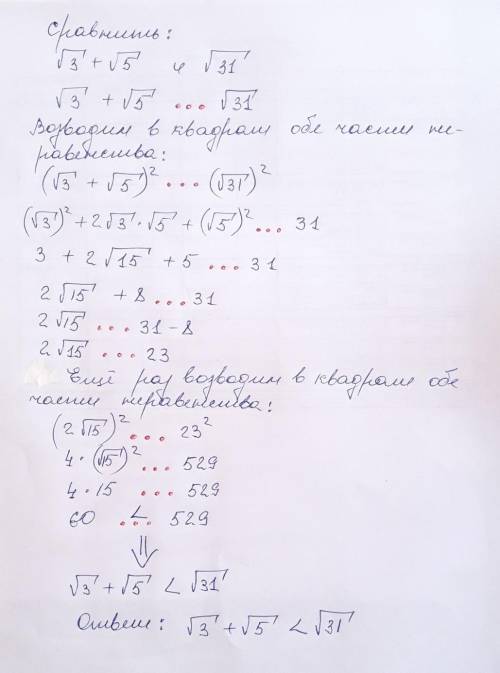 Сравнить:
√3 + √5 и √31
√3 + √5 ... √31
Возводим в квадрат обе части не-
равенства:
(√3 + √5)² ... (√31)²
(√3)² + 2√3·√5 + (√5)² ... 31
3 + 2√15 + 5 ... 31
2√15 + 8 ... 31
2√15 ... 31-8
2√15 ... 23
Ещё раз возводим в квадрат обе
части неравенства:
(2√15)² ... 23²
4·(√15)² ... 529
4·15 ... 529
60 <... 529
⇓
√3 + √5 < √31
Ответ: √3 + √5 < √31